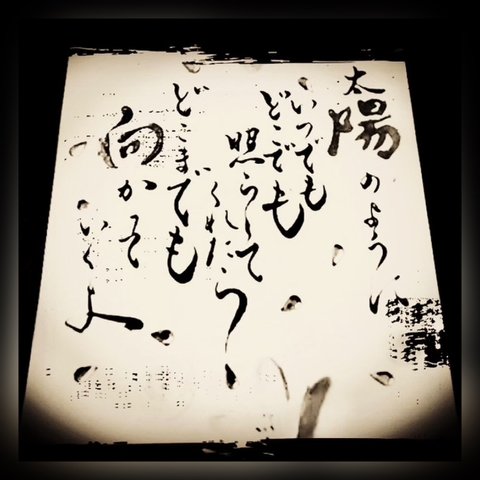 太陽のように
いつでも
どこでも
照らして
くれたら
どこまでも
向かって
いくよ